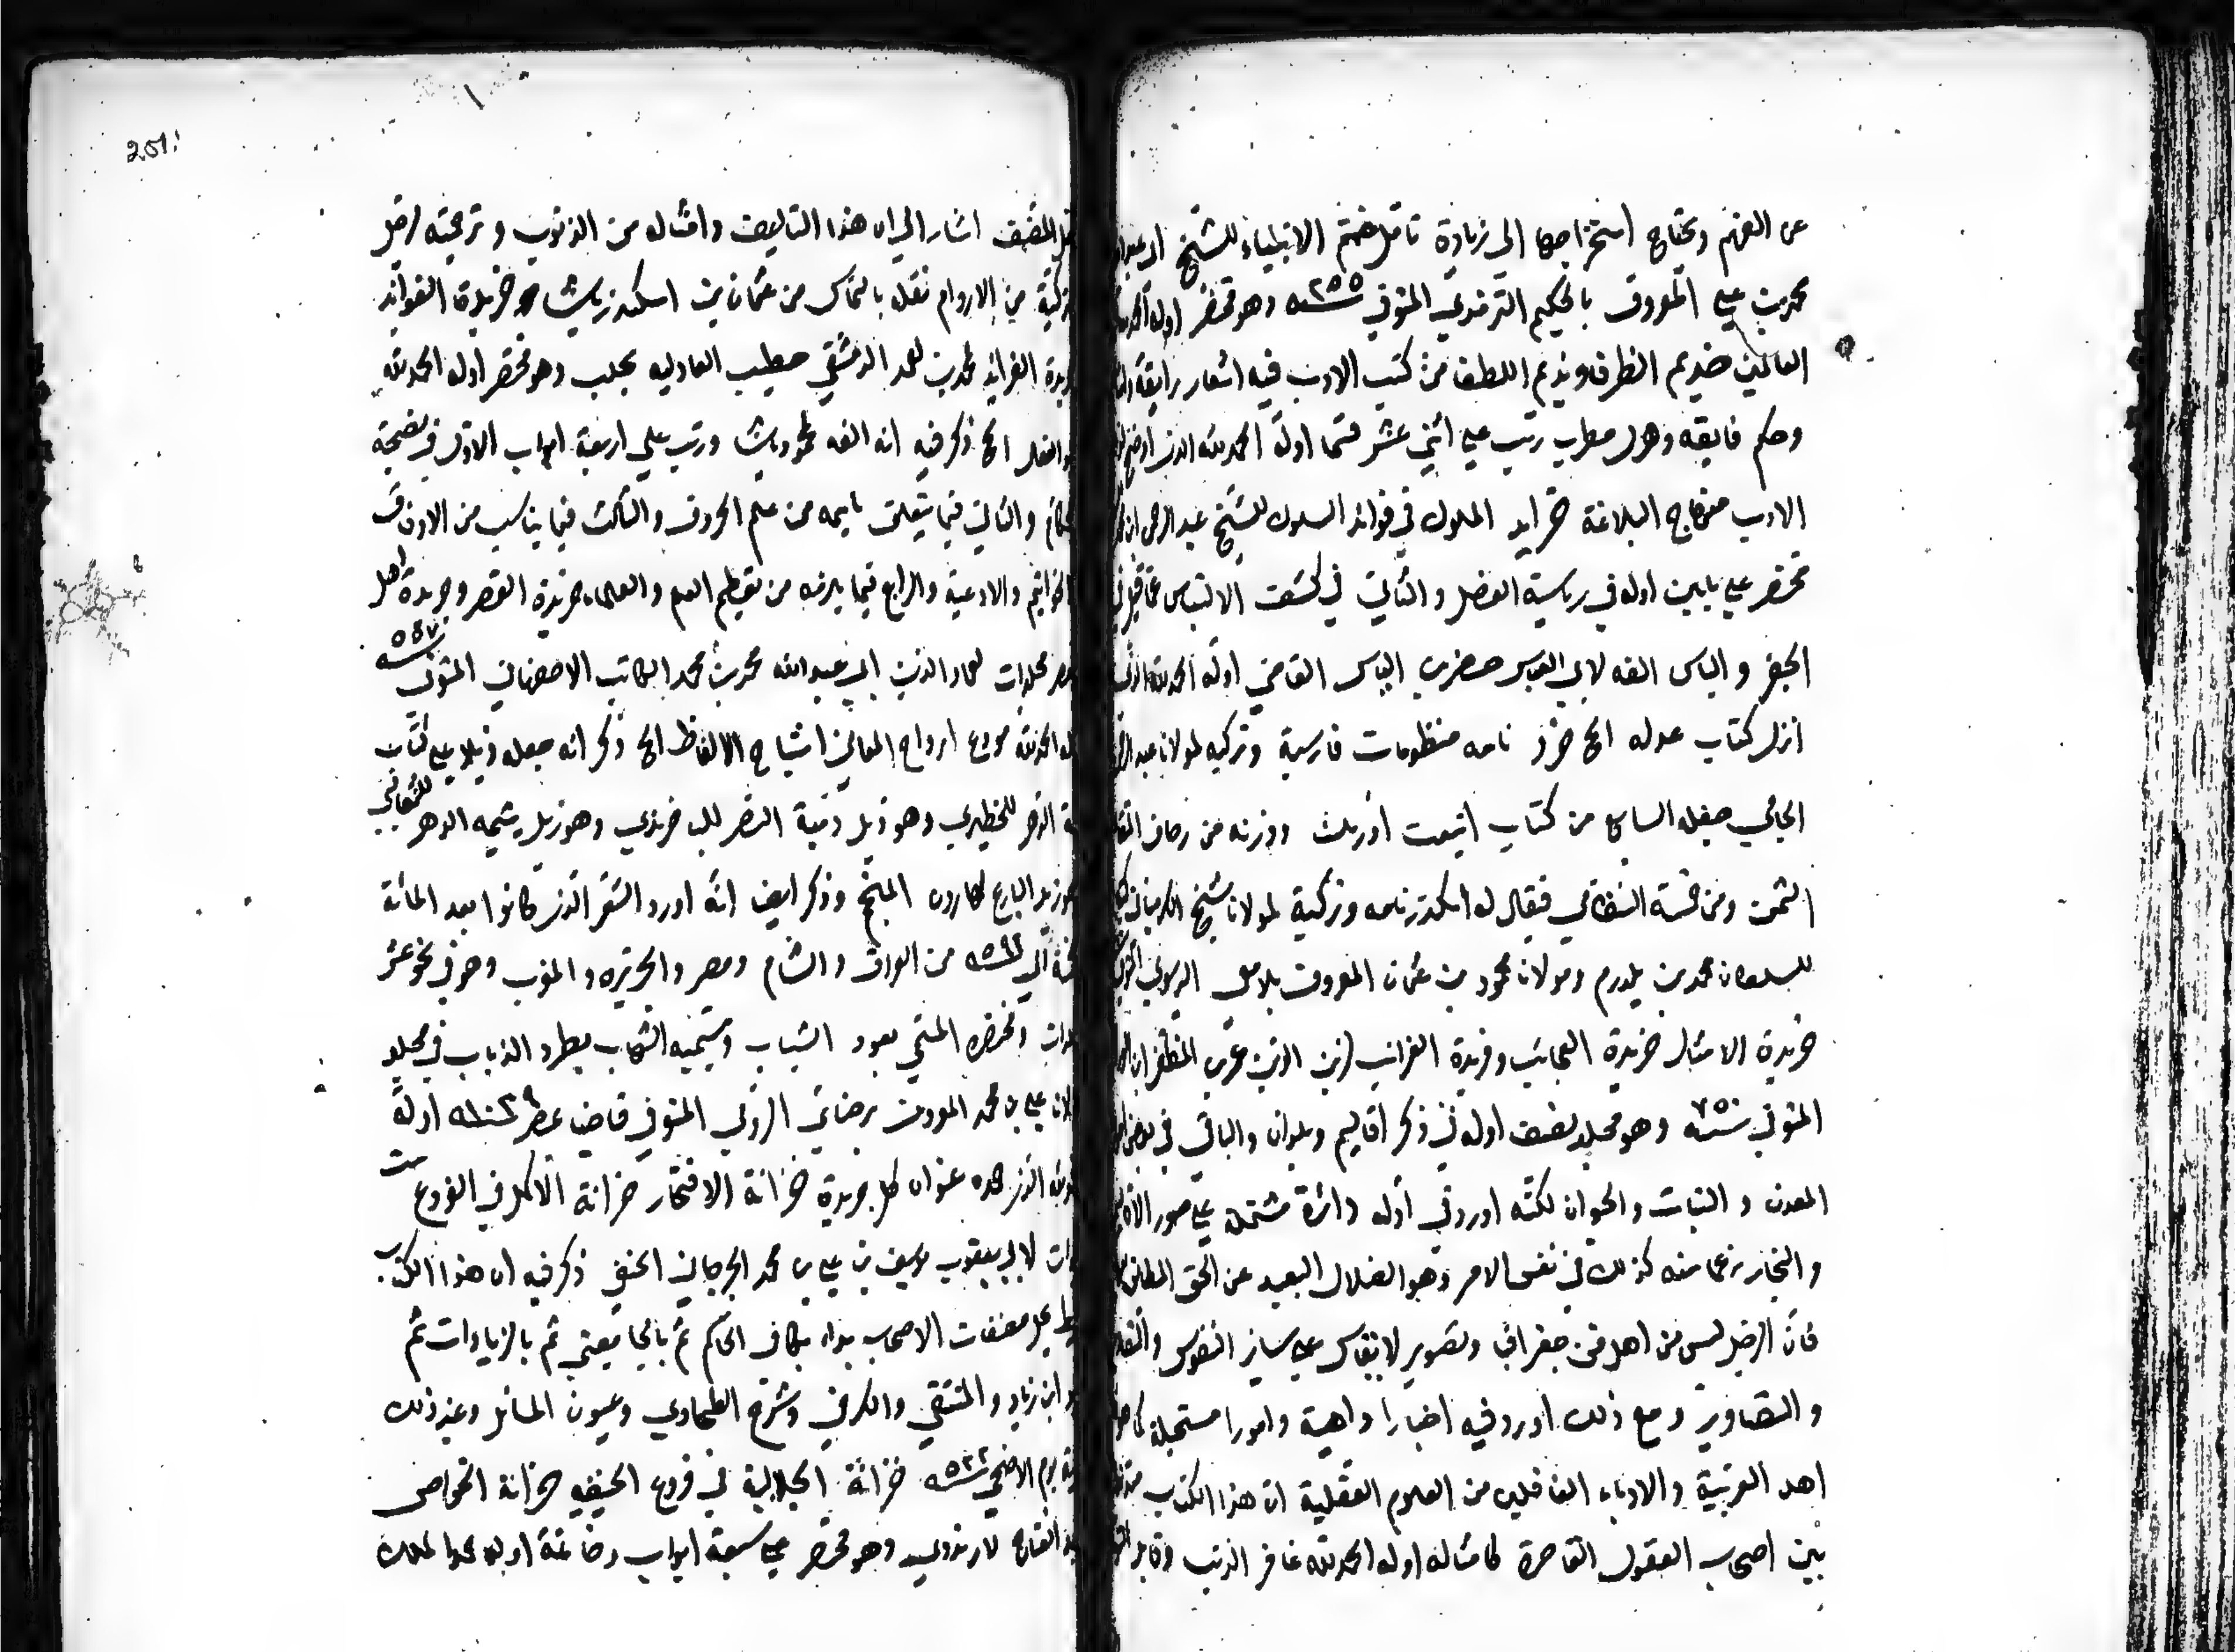 عن الفهم ويحتاج استخراجها الى زيادة تامل ختم الانبياء للشيخ ابى عبد
محمد بن على المعروف بالحكيم الترمذي المتوفى سنة ٢٥٥ وهو مختصر اوله الحمد لله
العالمين خديم الظرفا ونديم اللطفا من كتب الادب فيه اشعار رايقة
وحكم فايقه وهزل مطرب رتب على اثنى عشر قسما اوله الحمد لله الذى اوضح
الادب منهاج البلاغة خرايد الملوك في فوائد السلوك للشيخ عبد الرحمن
مختصر على بابين اوله في رياسة الفضل والثاني في كشف الالتباس عما قيل في
الخضر والياس الفه لابى العباس خضر بن الياس القاضي اوله الحمد لله الذى
انزل كتاب عدله الخ خرد نامه منظومات فارسية وتركيه لمولانا عبد الرحمن
الجامي جعله السابع من كتاب هفت اورنك ووزنه من زحاف المتقارب
المثمن ومن خمسة النظامي فيقال له اسكندرنامه وتركية لمولانا شيخ الكرمياني
للسلطان محمد بن يلدرم ومولانا محمود بن عثمان المعروف بلامعى البرسوى المتوفى
خريدة الامثال خريدة العجائب وفريدة الغرائب لزين الدين عمر بن المظفر ابن
المتوفى سنة ٧٥٠ وهو مجلد نصف اوله في ذكر اقاليم وبلدان والباقي في بعض احوال
المعدن والنبات والحيوان لكنه اورد في اوله دائرة مشتملة على صور الاقاليم
والبحار زعما منه كذلك في نفس الامر وهو الضلال البعيد عن الحق المطابق
فان الرجل ليس من اهل فن جغرافيا وتصوير لا يقاس على ساير النقوش
والتصاوير ومع ذلك اورد فيه اخبارا واهية وامورا مستحيلة كما هو
اهل العربية والادباء الغافلين من العلوم العقلية ان هذا الكتاب متداول
بين اصحاب العقول القاصرة كامثاله اوله الحمد لله غافر الذنب وقابل التوب
المصنف اشار الى ان هذا التاليف وامثاله من الذنوب وترجمته لرجل
تركية من الاروام نقله بالتماس من عثمان بن اسكندر باشا خريدة الفوائد
وجريدة الفرائد لمحمد بن الدمشقى خطيب العادليه بحلب وهو مختصر اوله الحمد لله
الخ ذكر فيه انه الفه لمحمود باشا ورتب على اربعة ابواب الاول في نصيحة
الحكام والثاني فيما يتعلق باسمه من علم الحروف والثالث فيما يناسب من الاوفاق
الخواتيم والادعية والرابع فيما يلزمه من تعظيم العلم والعلماء خريدة القصر وجريدة اهل
العصر مجلدات لعماد الدين ابى عبد الله محمد بن محمد الكاتب الاصفهاني المتوفى سنة ٥٩٧
اوله الحمد لله مودع ارواح المعانى اشباح الالفاظ الخ ذكر انه جعله ذيلا على كتاب
زينة الدهر للخطيرى وهو ذيل دمية القصر للباخرزي وهو ذيل يتيمه الدهر للثعالبى
وهو ذيل البارع لهارون المنجم وذكر ايضا انه اورد الشعر الذين كانوا بعد المائة
الخمسة الى سنة ٥٩٢ من العراق والشام ومصر والجزيره والمغرب وهو في نحو عشر
مجلدات ومختصره المسمى بعود الشباب وتسميه الشهاب بطرد الذباب في مجلد
لمولانا على بن محمد المعروف برضائي الرومى المتوفى قاضيا بمصر سنة ١٠٣٩ اوله
الحمد لله الذى حمده عنوان كل جريدة خزانة الافتخار خزانة الاكمل في الفروع ست
مجلدات لابى يعقوب يوسف بن على بن محمد الجرجاني الحنفى ذكر فيه ان هذا الكتاب
محيط بجل مصنفات الاصحاب بداء بكافي الحاكم ثم بالجامعين ثم بالزيادات ثم
بمجرد ابن زياد والمنتقى والكرخي وشرح الطحاوي وعيون المسائل وغير ذلك
يوم الاضحى سنة ٥٢٢ خزانة الجلالية في فروع الحنفيه خزانة الخواص
وهو مختصر على سبعة ابواب وخاتمة اوله
251